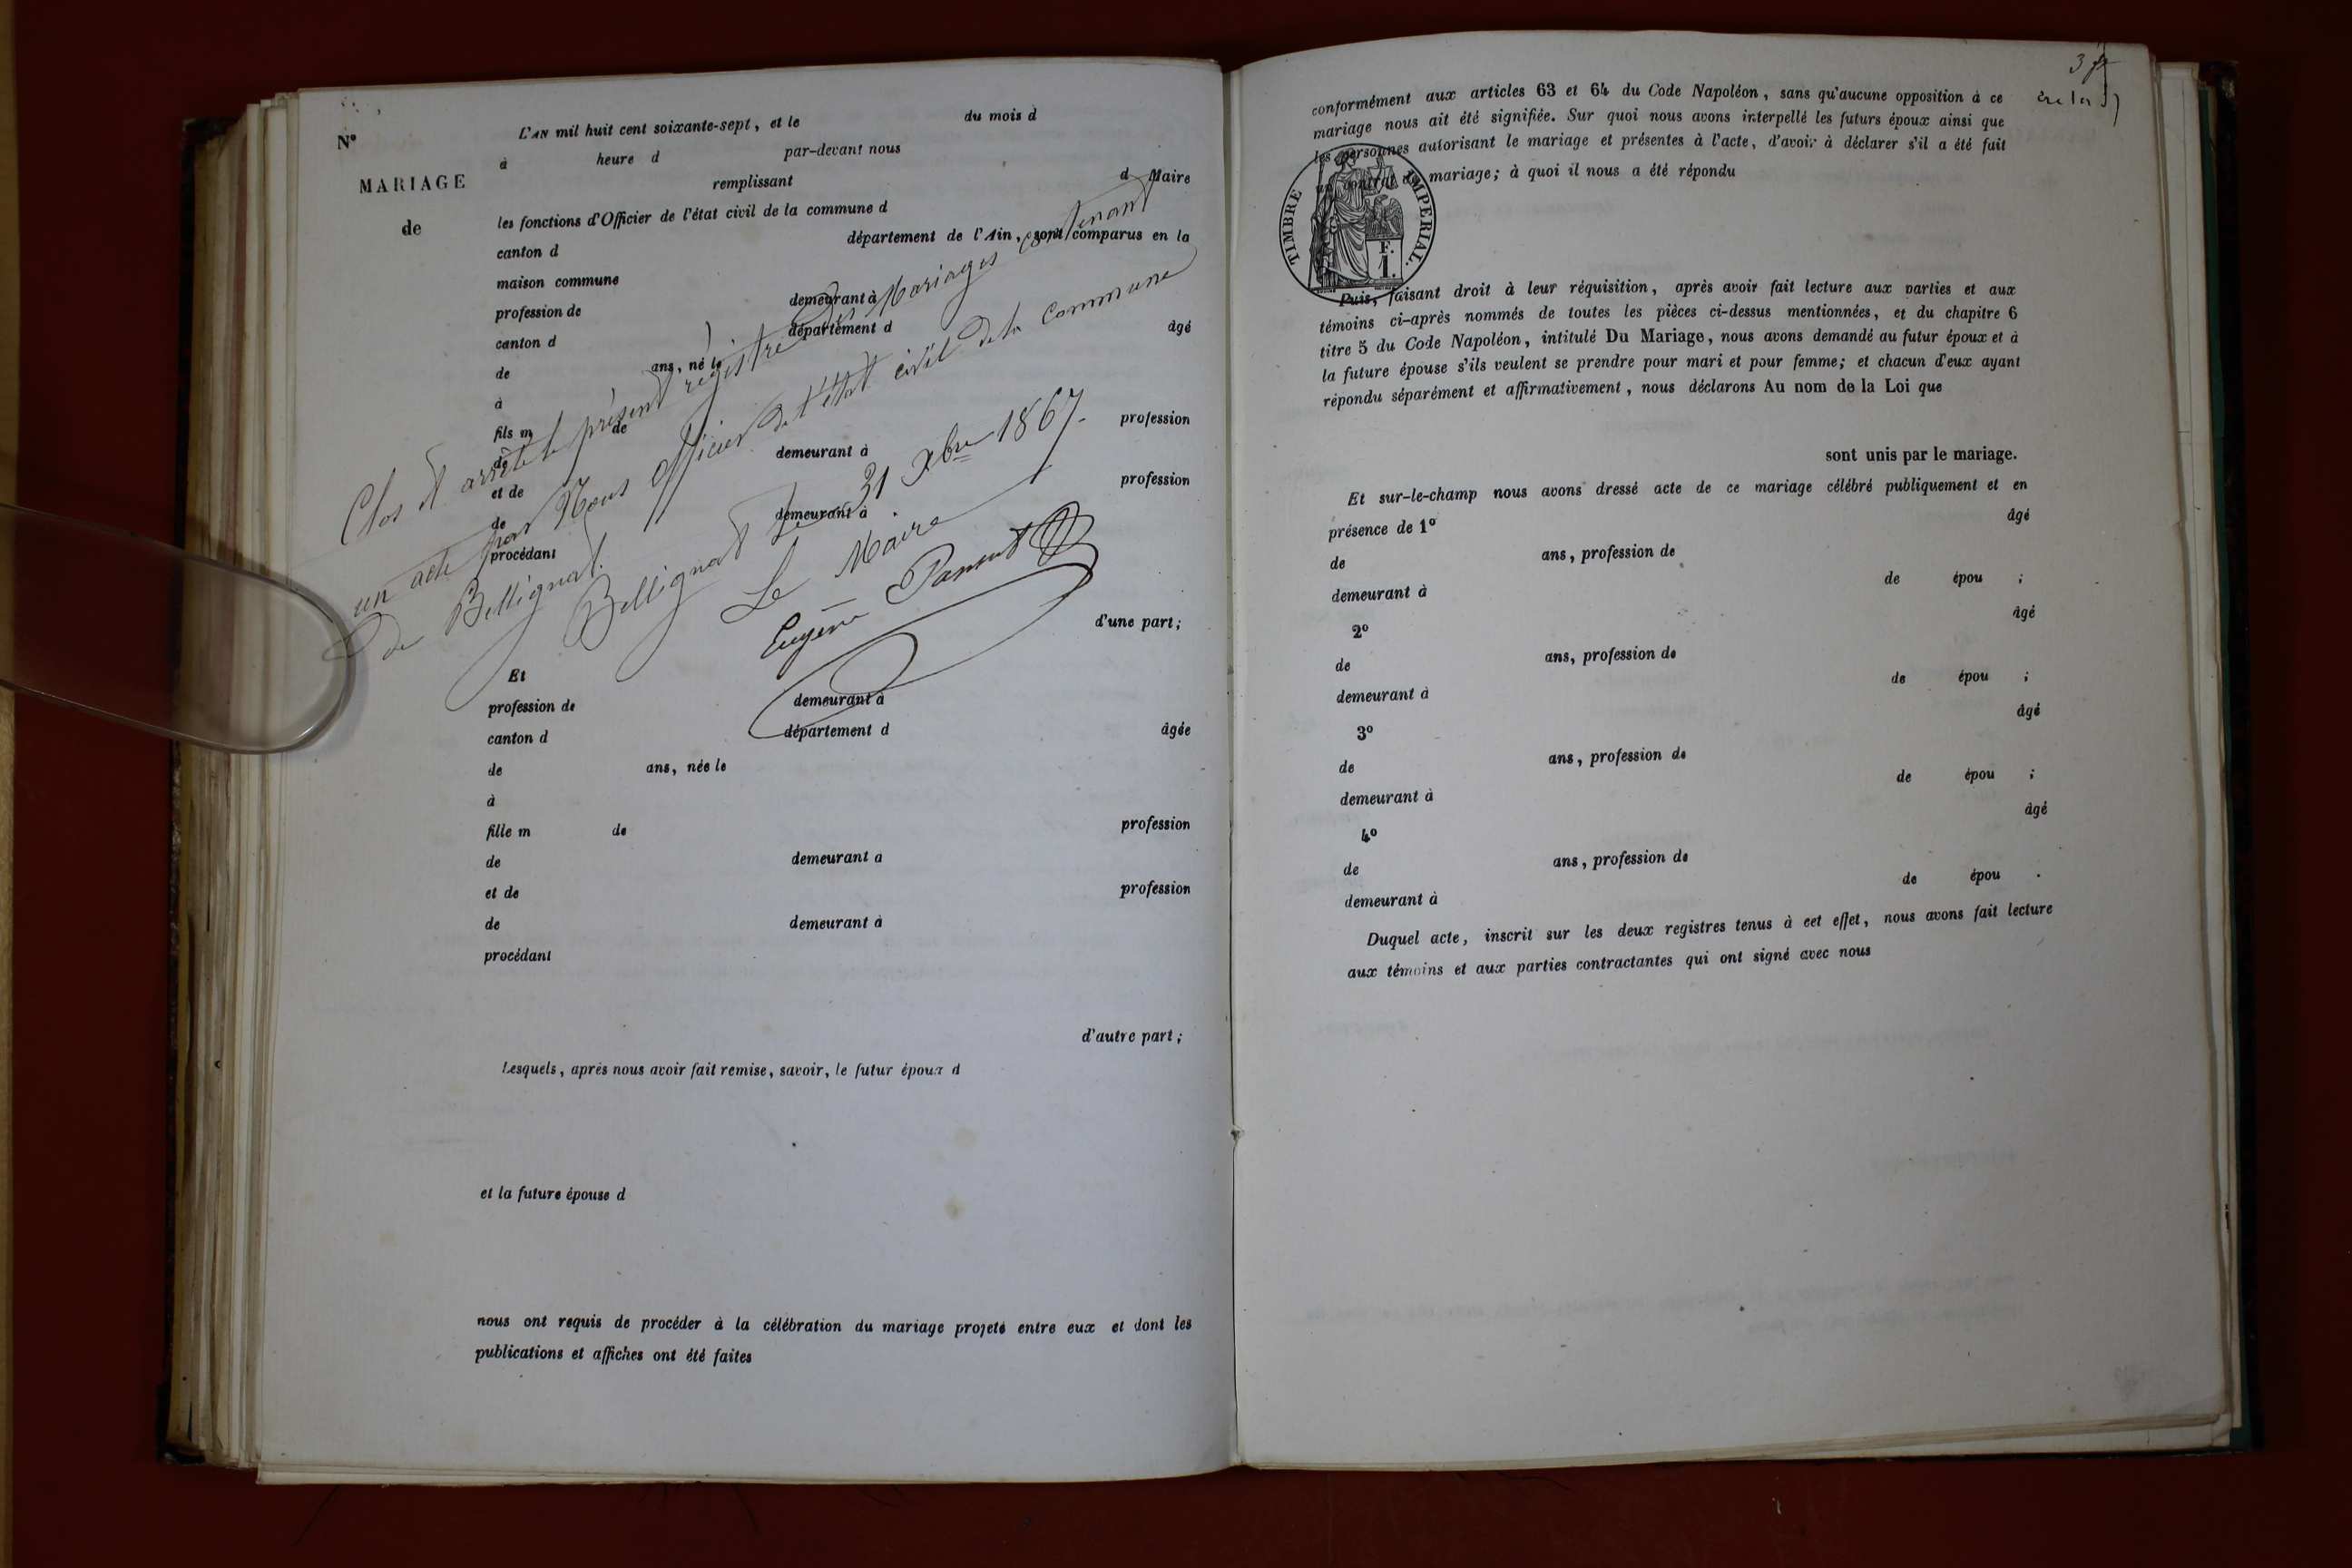 N°
MARIAGE
de
L'AN mil huit cent soixante-sept, et le du mois d
à heure d par-devant nous
remplissant d Maire
les fonctions d'Officier de l'état civil de la commune d
canton d département de l'Ain, sont comparus en la
maison commune
profession de demeurant à
canton d département d âgé
de ans, né le
à
fils m de profession
de demeurant à
et de profession
de demeurant à
procédant
d'une part;
Clos et arrêté le présent registre des Mariages contenant
un acte par Nous officier de l'état civil de la Commune
de Bellignat.
Bellignat le 31 Xbre 1867
Le Maire
Eugène
Et
profession de demeurant à
canton d département d âgée
de ans, née le
à
fille m de profession
de demeurant à
et de profession
de demeurant à
procédant
d'autre part;
Lesquels, après nous avoir fait remise, savoir, le futur époux d
et la future épouse d
nous ont requis de procéder à la célébration du mariage projeté entre eux et dont les
publications et affiches ont été faites
conformément aux articles 63 et 64 du Code Napoléon, sans qu'aucune opposition à ce
mariage nous ait été signifiée. Sur quoi nous avons interpellé les futurs époux ainsi que
les personnes autorisant le mariage et présentes à l'acte, d'avoir à déclarer s'il a été fait
un contrat de mariage; à quoi il nous a été répondu
TIMBRE IMPERIAL.
F.
1.
Puis, faisant droit à leur réquisition, après avoir fait lecture aux parties et aux
témoins ci-après nommés de toutes les pièces ci-dessus mentionnées, et du chapitre 6
titre 5 du Code Napoléon, intitulé Du Mariage, nous avons demandé au futur époux et à
la future épouse s'ils veulent se prendre pour mari et pour femme; et chacun d'eux ayant
répondu séparément et affirmativement, nous déclarons Au nom de la Loi que
sont unis par le mariage.
Et sur-le-champ nous avons dressé acte de ce mariage célébré publiquement et en
présence de 1° âgé
de ans, profession de
demeurant à de épou ;
2° âgé
de ans, profession de
demeurant à de épou ;
3° âgé
de ans, profession de
demeurant à de épou ;
4° âgé
de ans, profession de
demeurant à de épou .
Duquel acte, inscrit sur les deux registres tenus à cet effet, nous avons fait lecture
aux témoins et aux parties contractantes qui ont signé avec nous